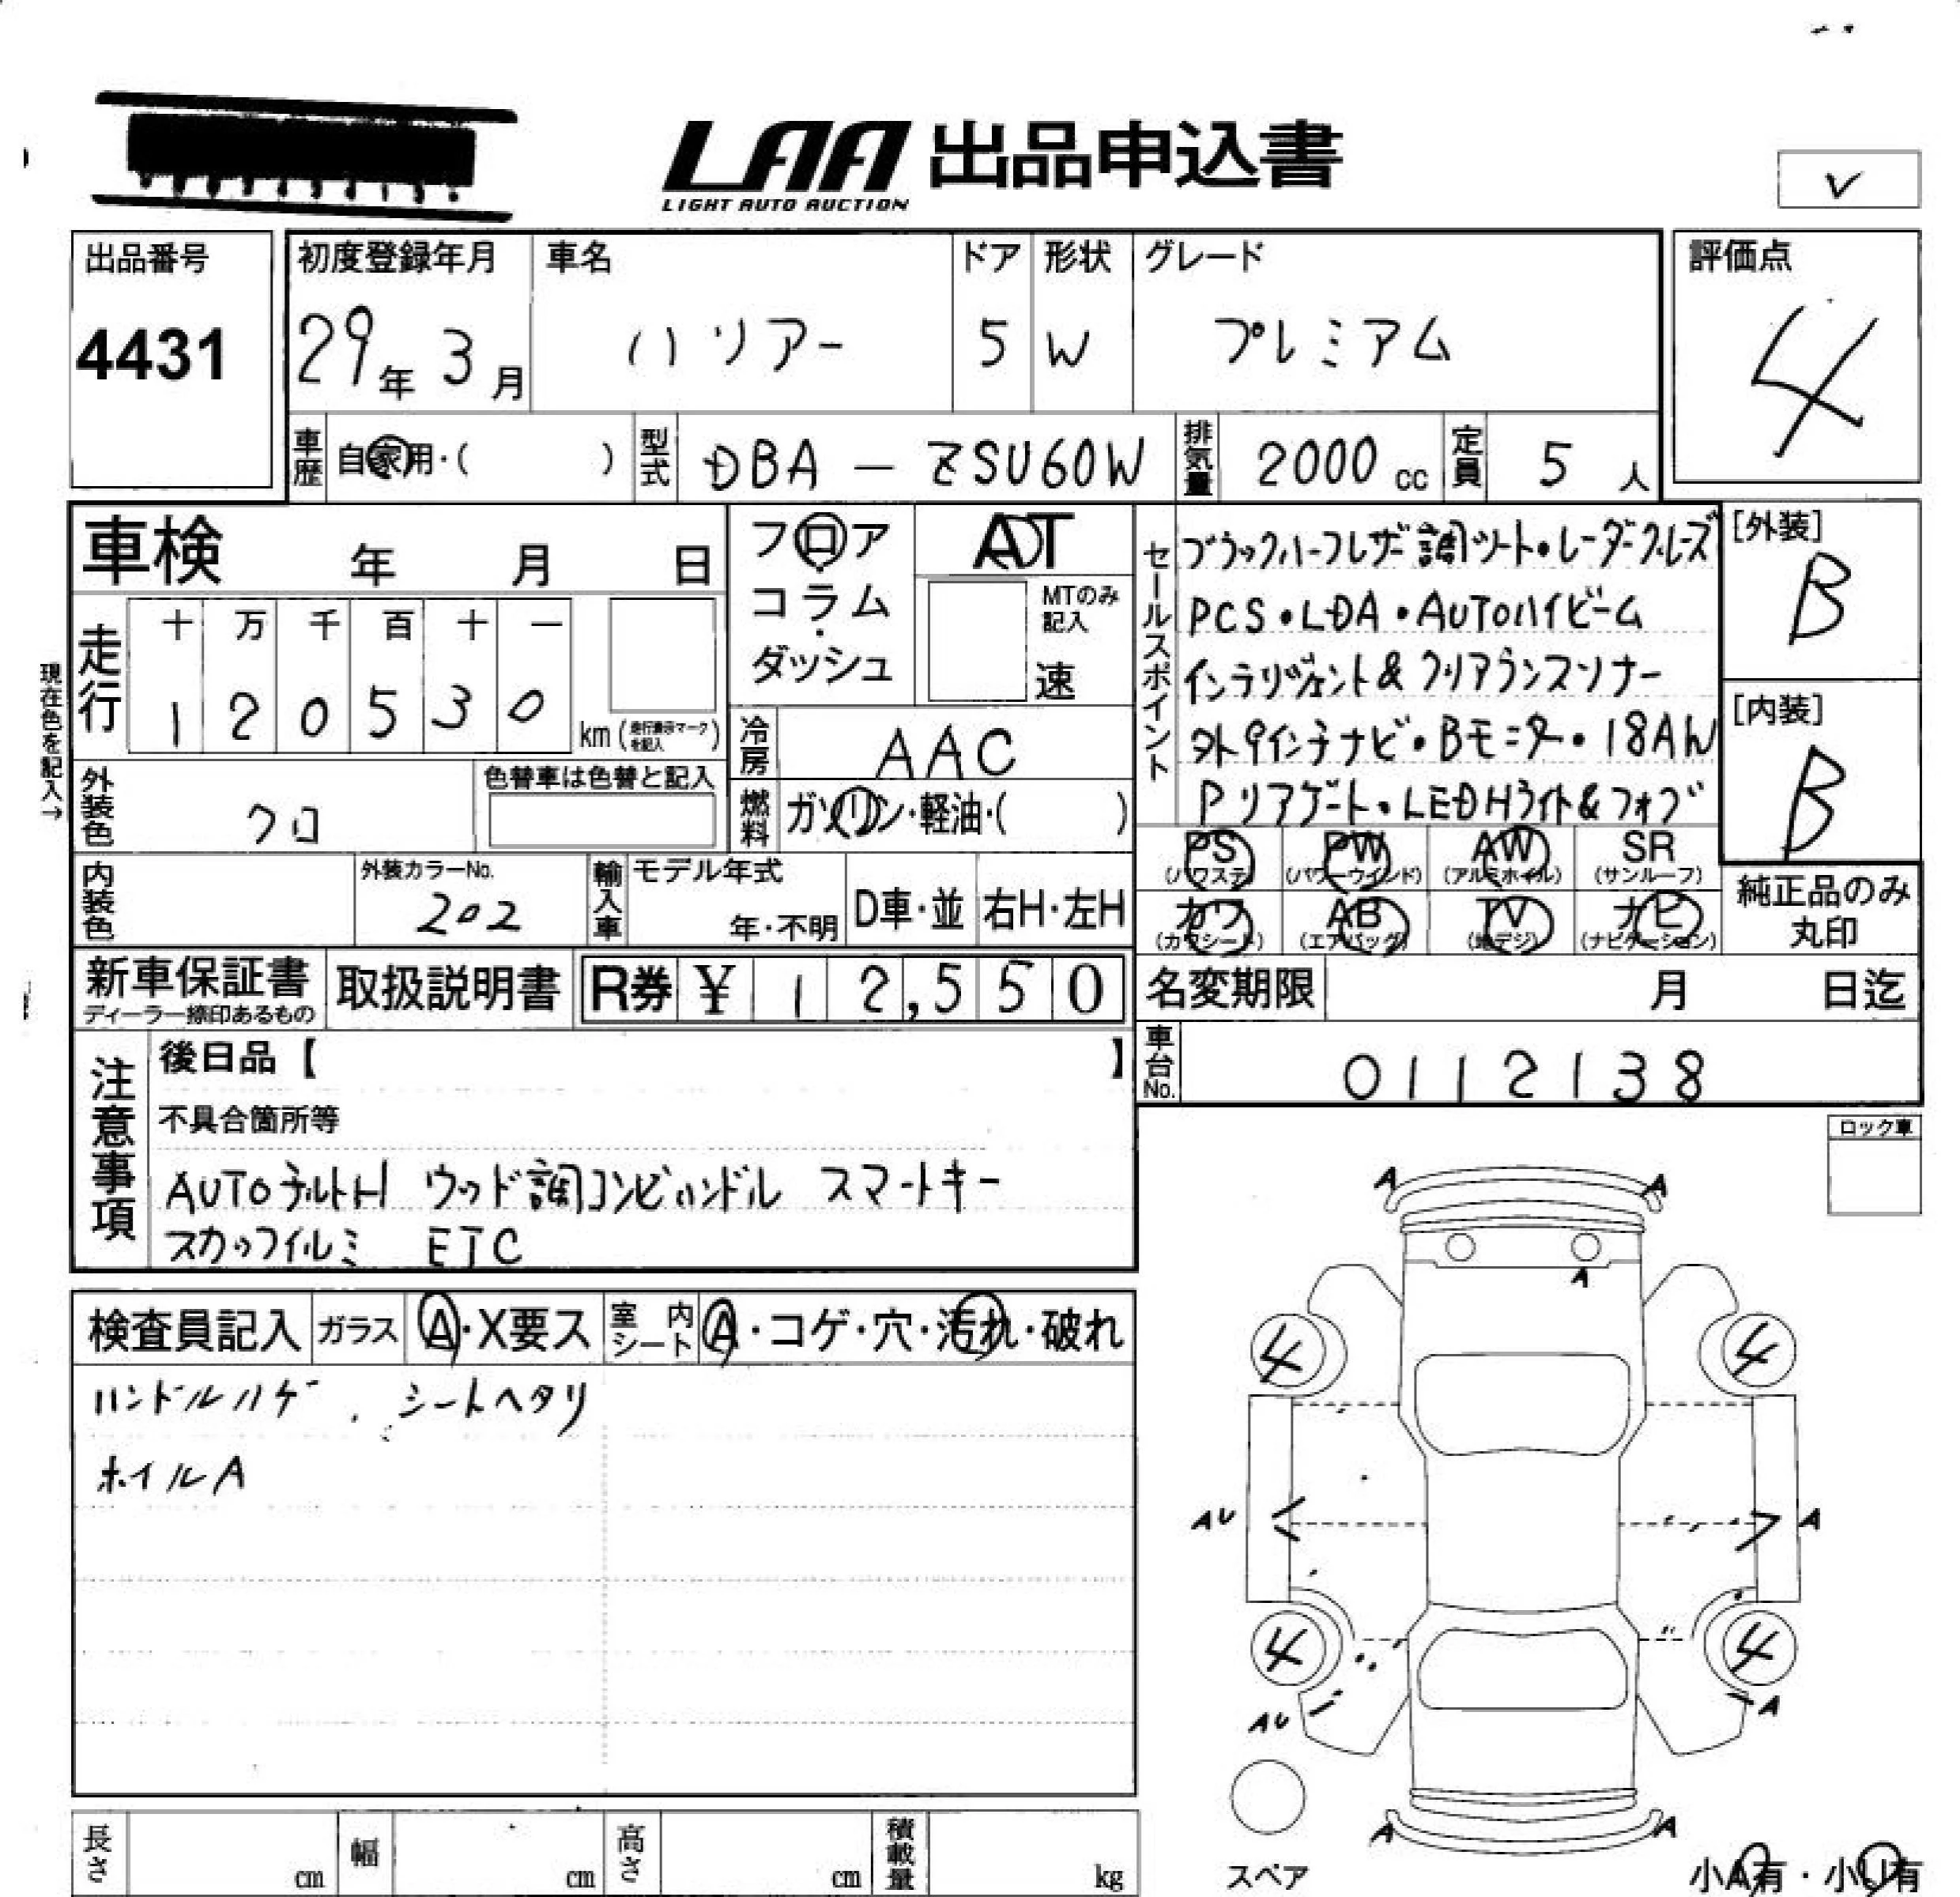 LAA 出品申込書
LIGHT AUTO AUCTION
出品番号 初度登録年月 車名 ドア 形状 グレード 評価点
4431 29年 3月 ハリアー 5 W プレミアム 4
車歴 自家用・( ) 型式 DBA - ZSU60W 排気量 2000cc 定員 5人
車検 年 月 日
フロア
コラム・
ダッシュ
AT
MTのみ記入
速
現在色を記入→
走行 十 万 千 百 十 一
1 2 0 5 3 0 km
冷房 AAC
外装色 クロ 色替車は色替と記入
燃料 ガソリン・軽油・( )
内装色 外装カラーNo. 202
輸入車 モデル年式 年・不明 D車・並 右H・左H
セールスポイント
ブラックハーフレザー調シート・レーダークルーズ
PCS・LDA・AUTOハイビーム
インテリジェント&クリアランスソナー
外9インチナビ・Bモニター・18AW
Pリアゲート・LEDHライト&フォグ
[外装]
B
[内装]
B
PS (パワステ) PW (パワーウインド) AW (アルミホイル) SR (サンルーフ)
カワ (カワシート) AB (エアバッグ) TV (地デジ) ナビ (ナビゲーション)
純正品のみ
丸印
新車保証書 取扱説明書 R券 ¥ 12,550
ディーラー捺印あるもの
名変期限 月 日迄
車台No. 0112138
注意事項
後日品【 】
不具合箇所等
AUTOチルトH ウッド調コンビハンドル スマートキー
スカッフイルミ ETC
ロック車
検査員記入 ガラス A・X要ス 室内シート A・コゲ・穴・汚れ・破れ
ハンドルハゲ、シートヘタリ
ホイルA
A A
A
4 4
AU A
4 4
AU A
A A
スペア
小A有・小U有
長さ cm 幅 cm 高さ cm 積載量 kg